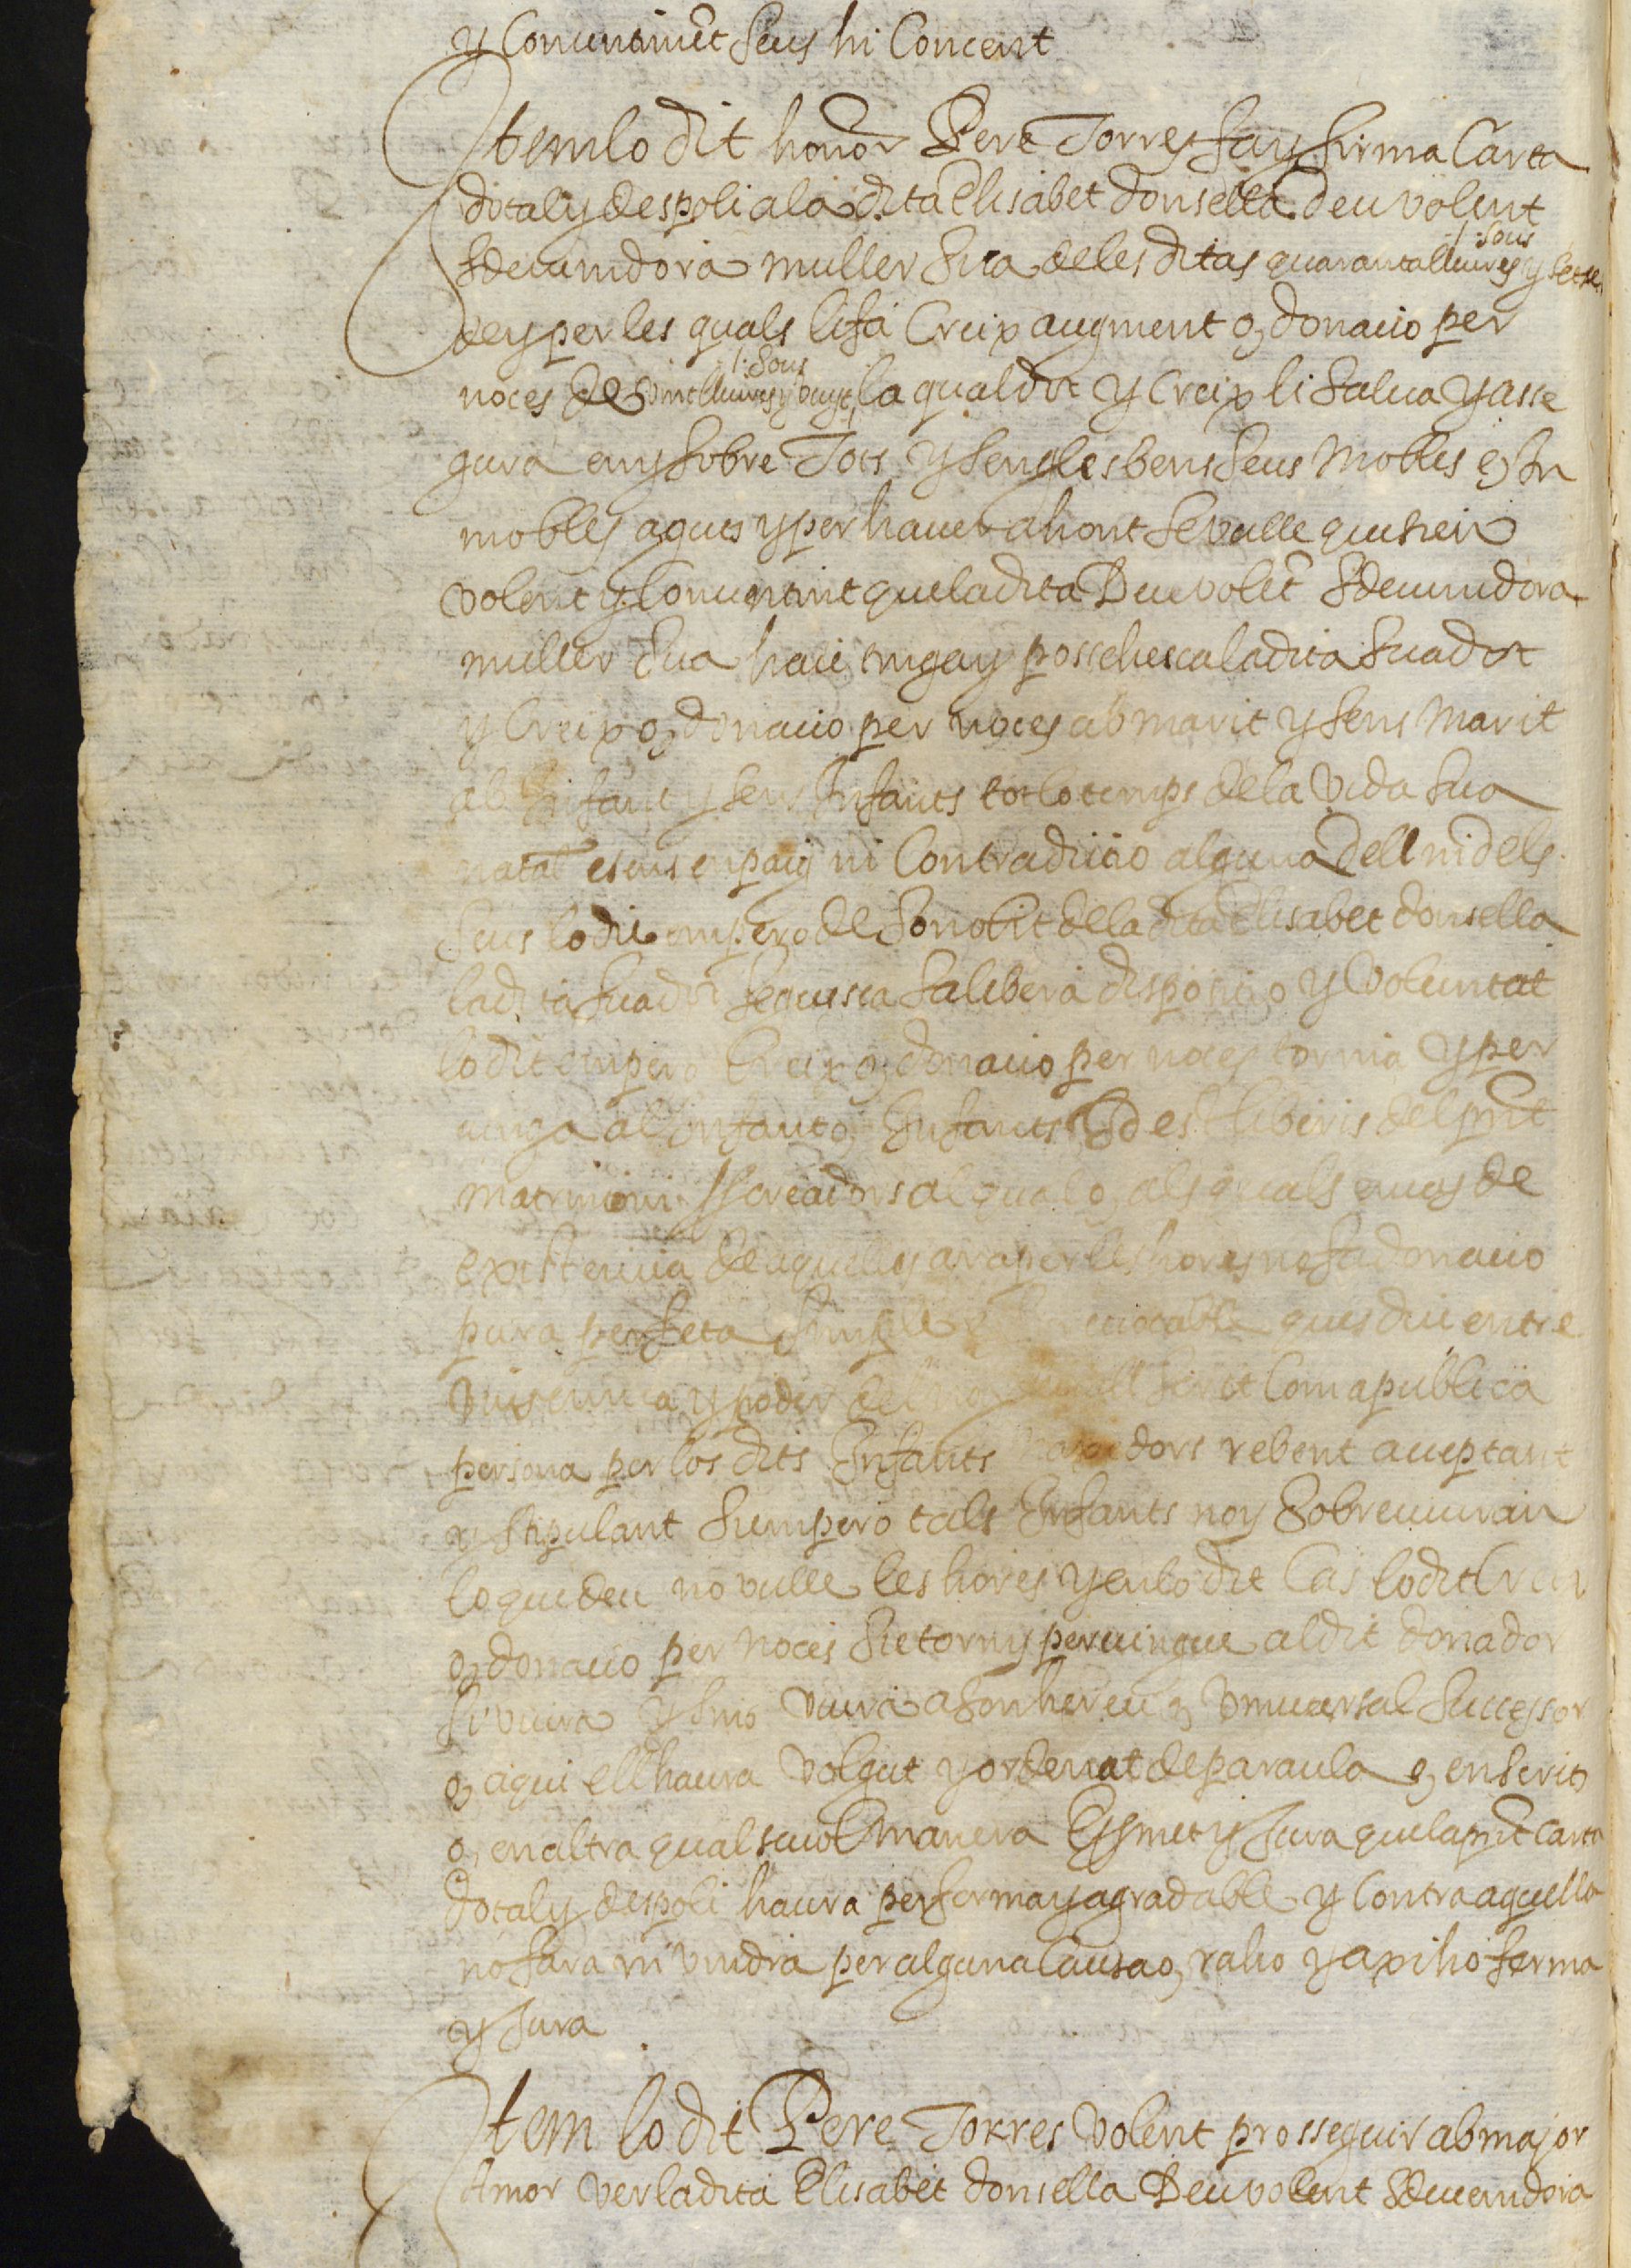 y Consentiment Seus hi Concent
Item lo dit honor Pere Torres fa y firma Carta
dotal y despoli a la dita Elisabet donsella Deu volent
Sdevenidora muller Sua de les ditas quaranta lliures y setse
l. Sous
de y per les quals li fa Creix augment o, donacio per
noces de vint lliures y vuyt, la qual dot y Creix li Salva y asse
l. Sous
gura en y sobre Tots y sengles bens Seus Mobles e, In
mobles aguts y per haver ahont se vulle que sien
volent y Consentint que la dita Deu volēt Sdevenidora
muller Sua haie tinga y possehesca la dita Sua dot
y Creix o, donacio per noces ab marit y Sens Marit
ab Infants y sens Infants tot lo temps de la Vida Sua
natāl e sens enpaig ni Contradiccio alguna Dell ni dels
Seus lo die empero de Son obit de la dita Elisabet donsella
la dita Sua dot Seguesca Sa libera disposicio y Voluntat
lo dit empero Creix o, donacio per noces tornia y per
vinga al Infant o, Infants Sdes lliberis del pnt
Matrimoni procreadors al qual o, als quals en cas de
existencia de aquells ara per les hores ne fa donacio
pura perfeta Simple irrevocable ques diu entre
Vius en ma y poder del not Scrit Com a publica
persona per los dits Infants naxedors rebent acceptant
y Stipulant Si empero tals Infants noy Sobreviuran
lo que deu no vulle les hores y en lo dit Cas lo dit Creix
o, donacio per Noces Sie torn y pervingue al dit donador
Si viura y Sino viura a Son hereu o, Universal Successor
o, a qui ell haura Volgut y ordenat de paraula o, en Scrits
o, en altra qualsevol Manera E promet y Jura que la pnt Carta
dotal y despoli haura per ferma y agradable y Contra aquella
no fara ni vindra per alguna Causa o, raho y axi ho ferma
y Jura
Item lo dit Pere Torres Volent prosseguir ab major
Amor ver la dita Elisabet donsella Deu volent Sdevenidora